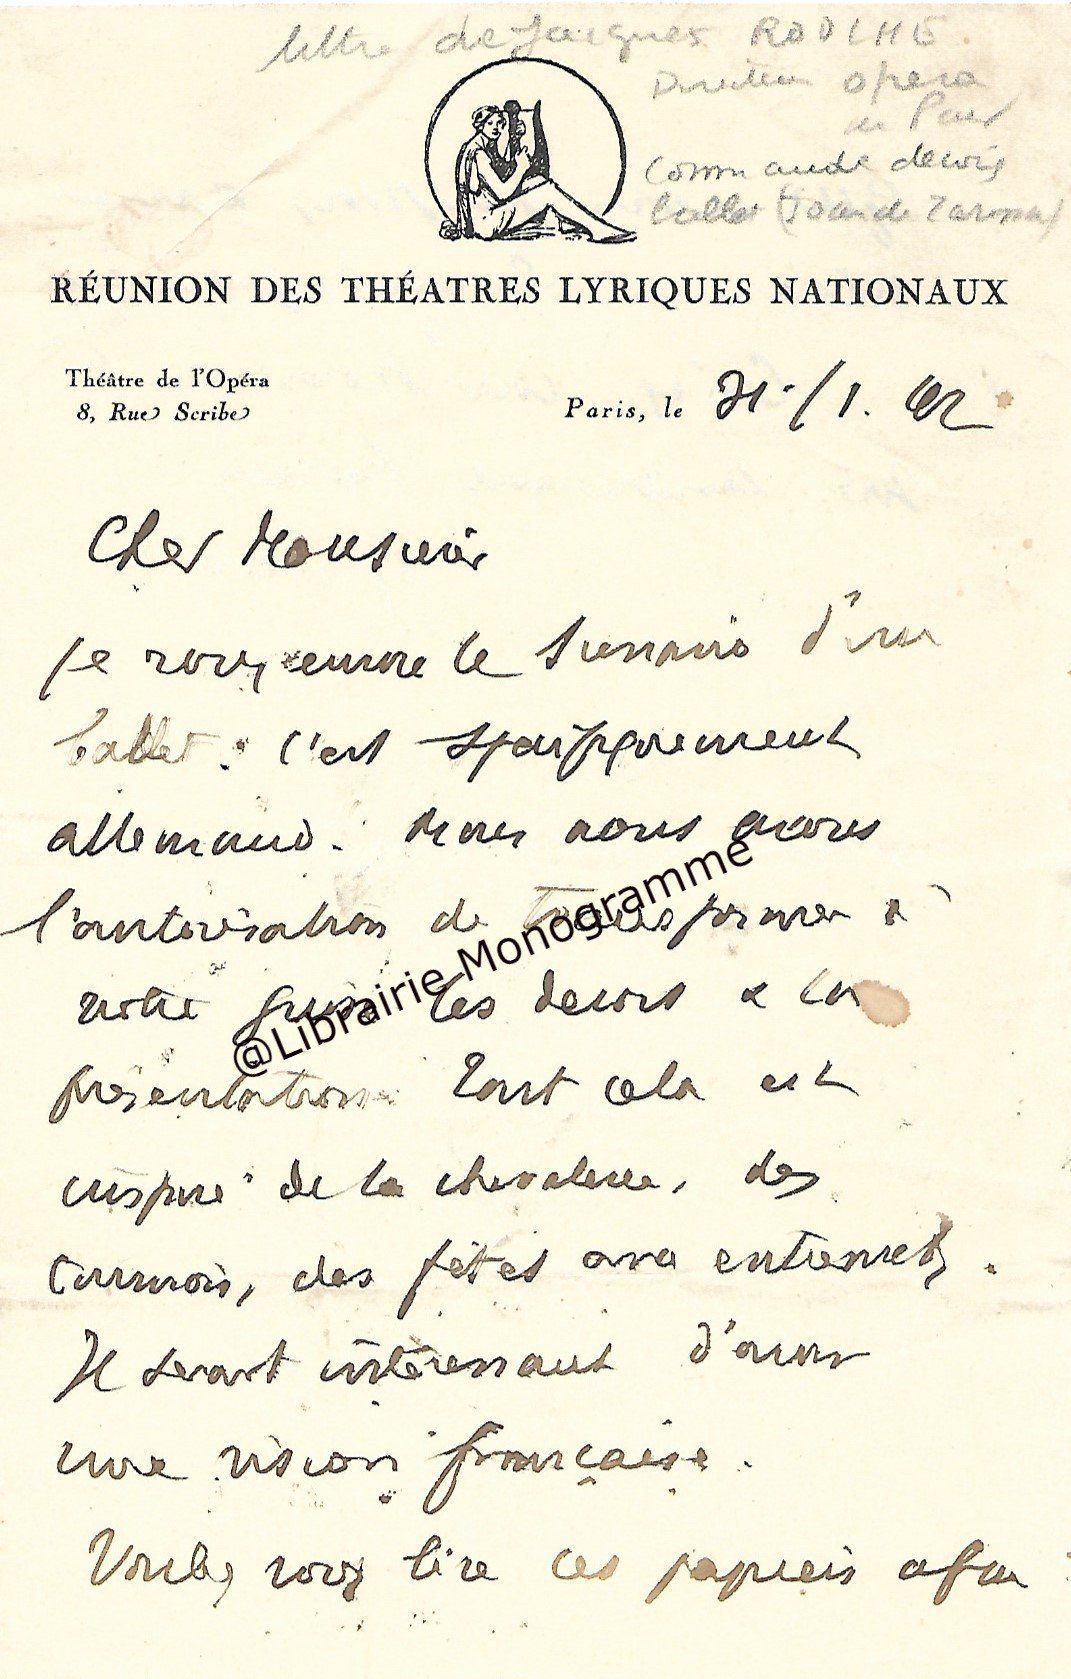 lettre de Jacques ROUCHÉ
Directeur opéra
de Paris
commande decors
ballet (Joan de Zarissa)
RÉUNION DES THÉATRES LYRIQUES NATIONAUX
Théâtre de l'Opéra
8, Rue Scribe
Paris, le 31·/1. 42
Cher Monsieur
Je vous envoie le scenario d'un
ballet : c'est spécifiquement
allemand. Mais nous avons
l'autorisation de transformer à
notre guise les decors & la
présentation Tout cela est
inspiré de la chevalerie, des
tournois, des fêtes avec entremets.
Il serait intéressant d'avoir
une vision française.
Voulez vous lire ces papiers afin
@Librairie Monogramme